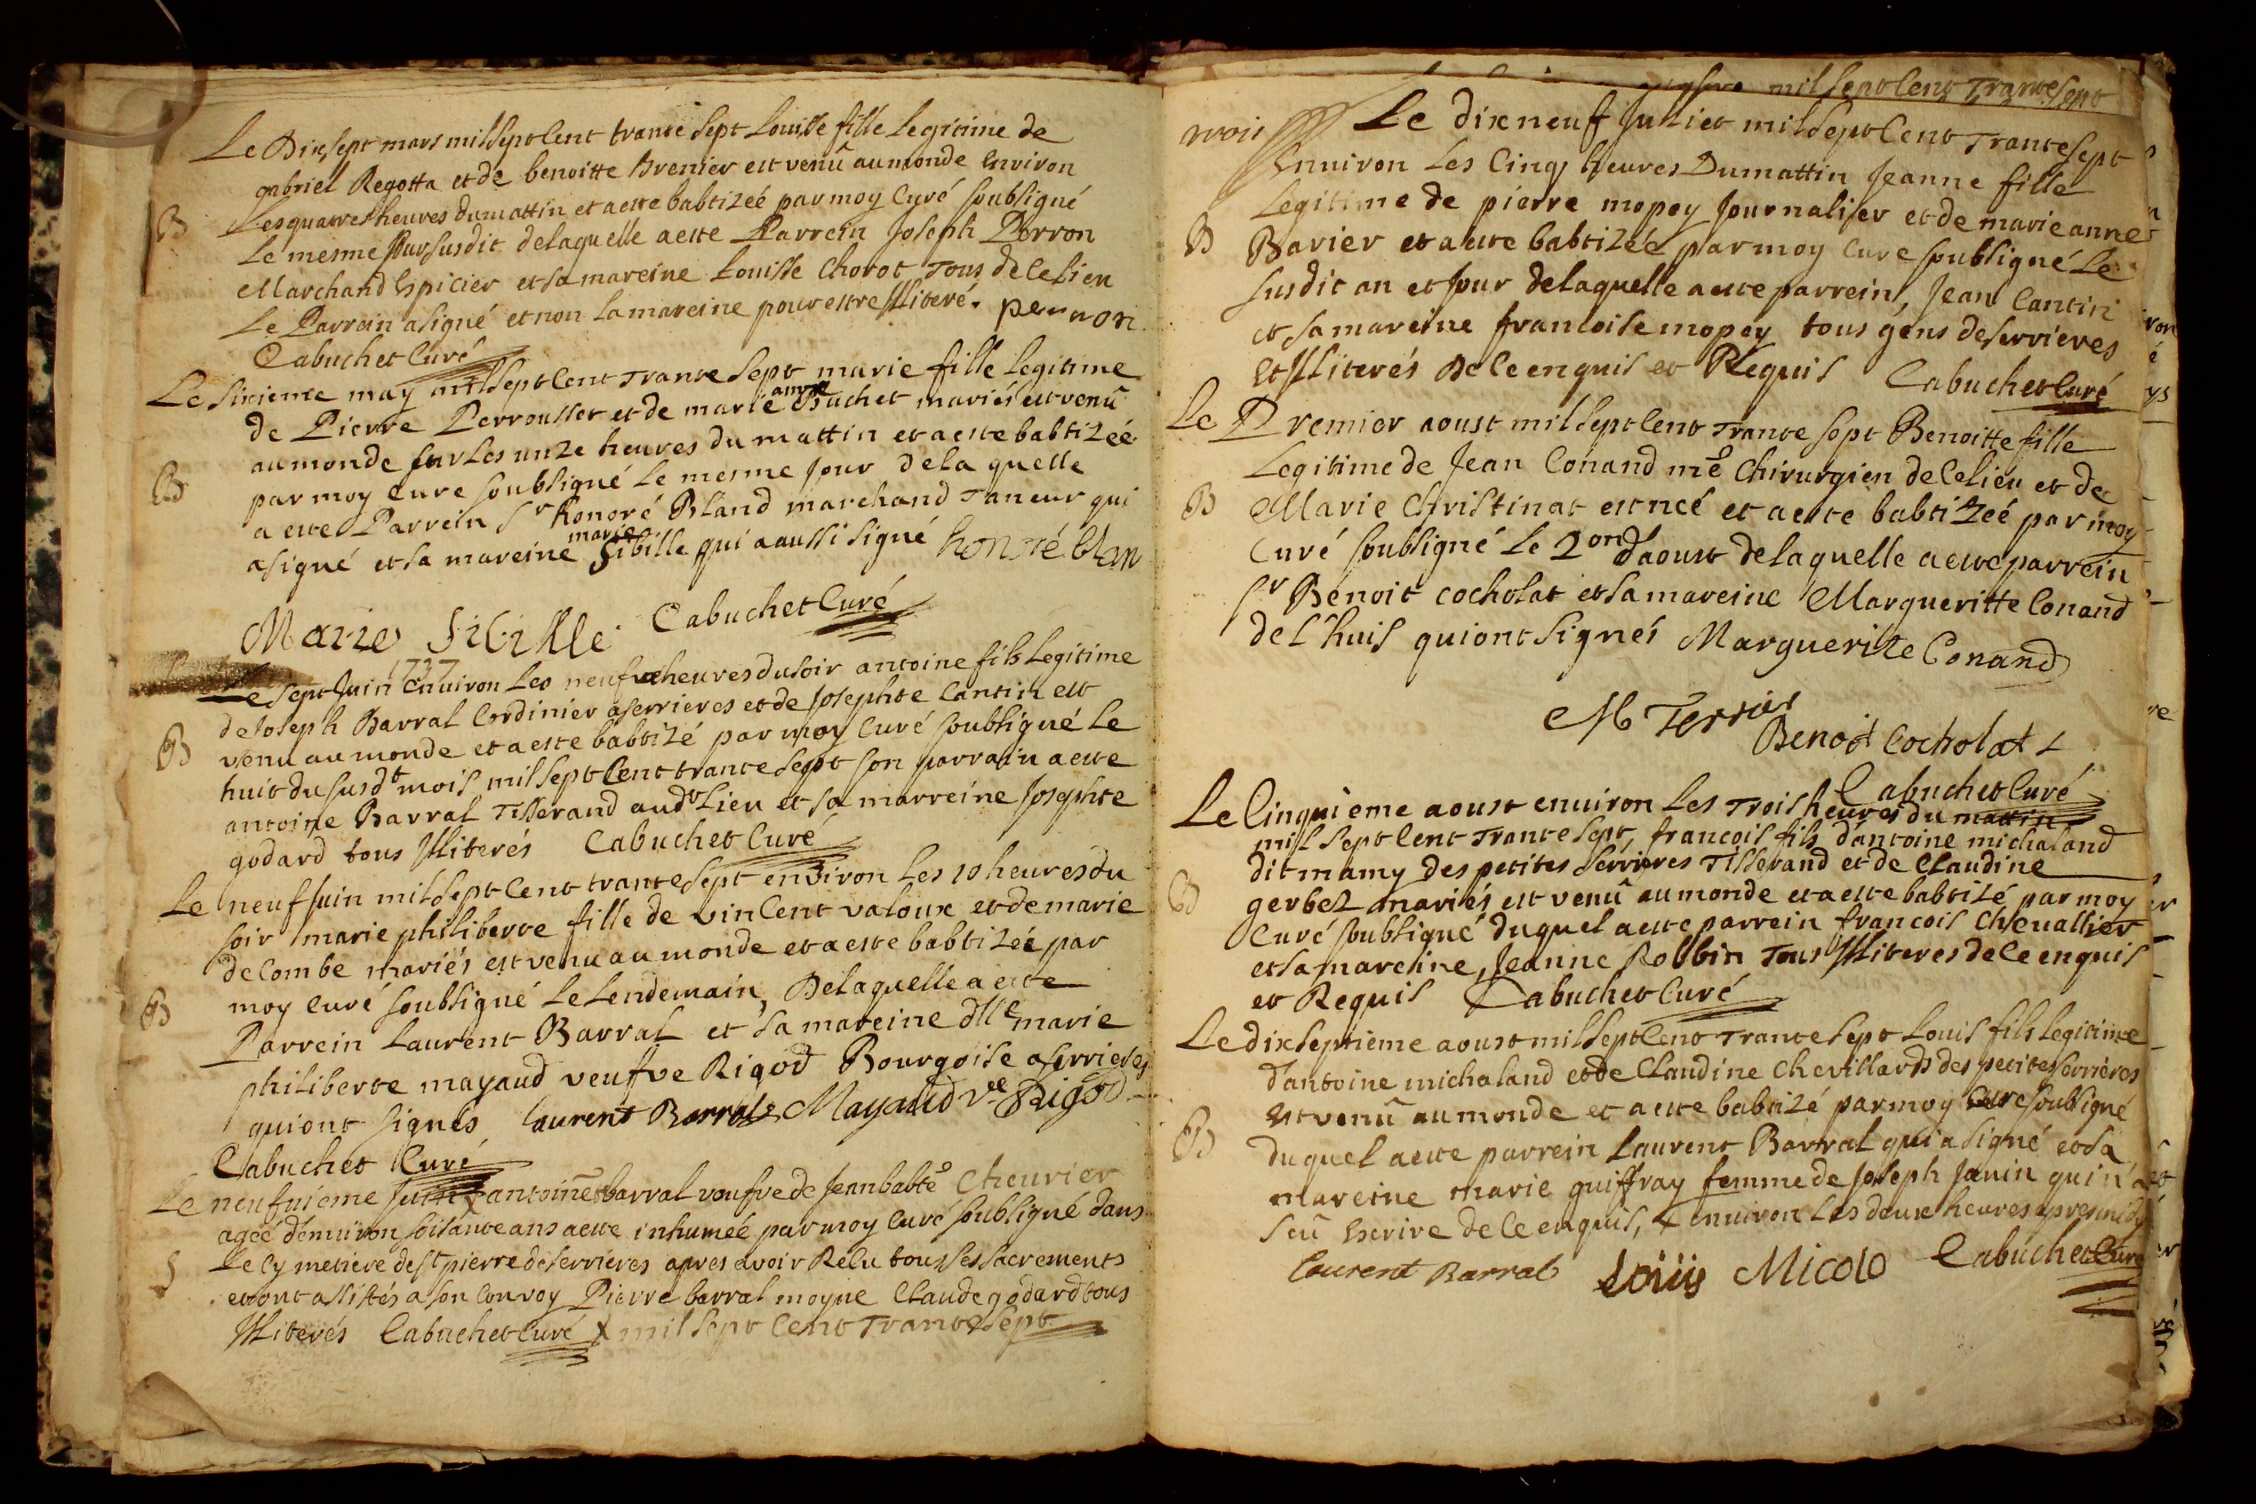 Le Dix sept mars mil sept Cent trante sept Louisse fille Legitime de
gabriel Regotta et de benoitte brenier est venû au monde Environ
Les quattres heures du mattin et a este babtizeé par moy Curé soubsigné
B
Le mesme Jour susdit de laquelle a este Parrein Joseph Perron
Marchand Epicier et sa mareine Louisse Chorot Tous de Ce Lieu
Le Parrein a signé et non La mareine pour estre Illiteré. perron
Cabuchet Curé
Le sixieme may mil sept Cent Trante sept marie fille Legitime
de Pierre Perrousset et de marie anne Buchet mariés est venû
au monde sur Les unze heures du mattin et a este babtizeé
B
par moy Cure soubsigné Le mesme Jour de la quelle
a este Parrein Sr honoré Bland marchand Taneur qui
a signé et sa mareine marie Sibille qui a aussi signé honoré blan
Marie Sibille Cabuchet Curé
1737
Le sept Juin Enuiron Les neufve heures du soir antoine fils Legitime
de Joseph Barral Cordinier a serrieres et de Josephte Cantin est
B
venu au monde et a este babtizé par moy Curé soubsigné Le
huit du susdt mois mil sept Cent trante sept son parrain a este
antoine Barral Tisserand audt Lieu et sa marreine Josephte
godard tous Illiterés Cabuchet Curé
Le neuf Juin mil sept Cent trante sept environ Les 10 heures du
soir marie philiberte fille de vinCent valoux et de marie
deCombe mariés est venu au monde et a este babtizée par
B
moy Curé soubsigné Le Lendemain, De laquelle a este
Parrein Laurent Barral et sa mareine dlle marie
philiberte mayaud veufve Rigod Bourgoise a serrieres
qui ont signés Laurent Barral Mayaud vee Rigod
Cabuchet Curé
Le neufuieme Juin X antoine barral veufve de Jean babte Cheurier
ageé d'enuiron soisante ans a este inhumée par moy Curé soubsigné dans
S
Le Cymetiere de st pierre de serrieres apres avoir Relu tous ses sacrements
et ont assistés a son Convoy Pierre barral moyne Claude godard tous
Illiterés Cabuchet Curé X mil sept Cent Trante sept
mil sept Cent Trante sept
Le dix neuf Julliet mil sept Cent Trante sept
Enuiron Les Cinq heures Du mattin Jeanne fille
Legitime de pierre mopey Journalier et de marie anne
B
Barier et a este babtizée par moy Cure soubsigné Le
susdit an et Jour de laquelle a este parrein, Jean Cantin
et sa mareine francoise mopey tous gens de serrieres
Et Illiterés De Ce enquis et Requis Cabuchet Curé
Le Premier aoust mil sept Cent Trante sept Benoitte fille
Legitime de Jean Conand me Chirurgien de Ce Lieu et de
B
Marie Christinat est neé et a este babtizeé par moy
Curé soubsigné Le 2on d'aoust de laquelle a este parrein
Sr Benoit cocholat et sa mareine Margueritte Conand
de L'huis qui ont signés Marguerite Conand
Benoit Cocholat
Cabuchet Curé
Le Cinquieme aoust enuiron Les Trois heures du mattin
mil sept Cent Trante sept, francois fils d'antoine michaland
dit mamy des petites serrieres Tisserand et de Claudine
B
gerbez mariés est venû au monde et a este babtizé par moy
Curé soubsigné du quel a este parrein francois Cheuallier
et sa mareine, Jeanne Robbin Tous Illiteres de Ce enquis
et Requis Cabuchet Curé
Le dix septieme aoust mil sept Cent Trante sept Louis fils Legitime
d'antoine michaland et de Claudine Chevillard des petites serrieres
B
est venû au monde et a este babtizé par moy Cure soubsigné
du quel a este parrein Laurent Barral qui a signé et sa
mareine marie guiffray femme de Joseph Janin qui n'a
seu Escrire de Ce enquis, enuiron Les deux heures apres midy
Laurent Barral Loüis Micolo Cabuchet Curé